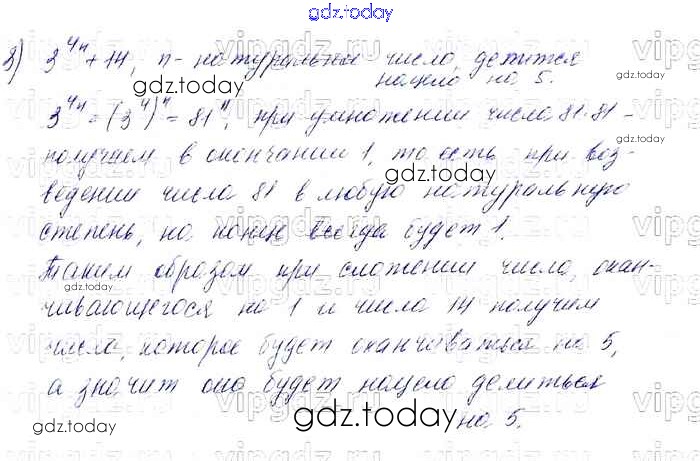 gdz.today
3) 3^{4n} + 14, n - натуральное число, делится
нацело на 5.
3^{4n} = (3^4)^n = 81^n, при умножении числа 81·81 -
получаем в окончании 1, то есть при воз-
ведении числа 81 в любую натуральную
степень, на конце всегда будет 1.
Таким образом при сложении числа, окан-
чивающегося на 1 и числа 14 получим
число, которое будет оканчиваться на 5,
а значит оно будет нацело делиться
на 5.
gdz.today